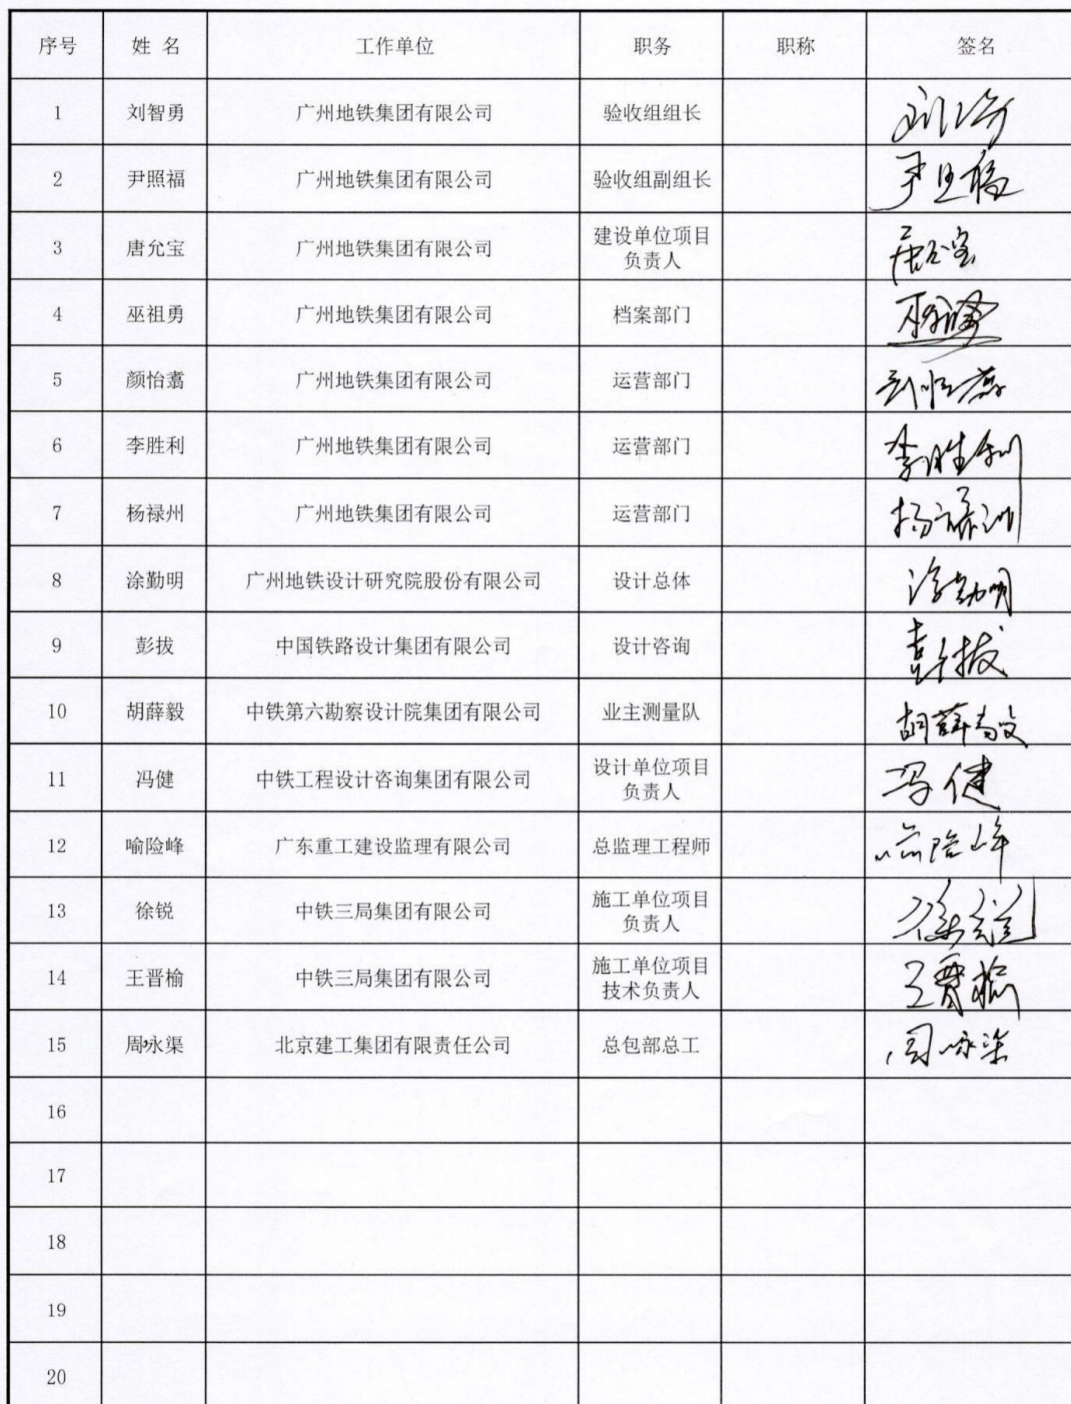 序号 姓 名 工作单位 职务 职称 签名
1 刘智勇 广州地铁集团有限公司 验收组组长
2 尹照福 广州地铁集团有限公司 验收组副组长 尹照福
3 唐允宝 广州地铁集团有限公司 建设单位项目
负责人 唐允宝
4 巫祖勇 广州地铁集团有限公司 档案部门
5 颜怡翥 广州地铁集团有限公司 运营部门
6 李胜利 广州地铁集团有限公司 运营部门 李胜利
7 杨禄州 广州地铁集团有限公司 运营部门
8 涂勤明 广州地铁设计研究院股份有限公司 设计总体 涂勤明
9 彭拔 中国铁路设计集团有限公司 设计咨询 彭拔
10 胡薛毅 中铁第六勘察设计院集团有限公司 业主测量队
11 冯健 中铁工程设计咨询集团有限公司 设计单位项目
负责人 冯健
12 喻险峰 广东重工建设监理有限公司 总监理工程师 喻险峰
13 徐锐 中铁三局集团有限公司 施工单位项目
负责人 徐锐
14 王晋榆 中铁三局集团有限公司 施工单位项目
技术负责人 王晋榆
15 周永渠 北京建工集团有限责任公司 总包部总工 周永渠
16
17
18
19
20